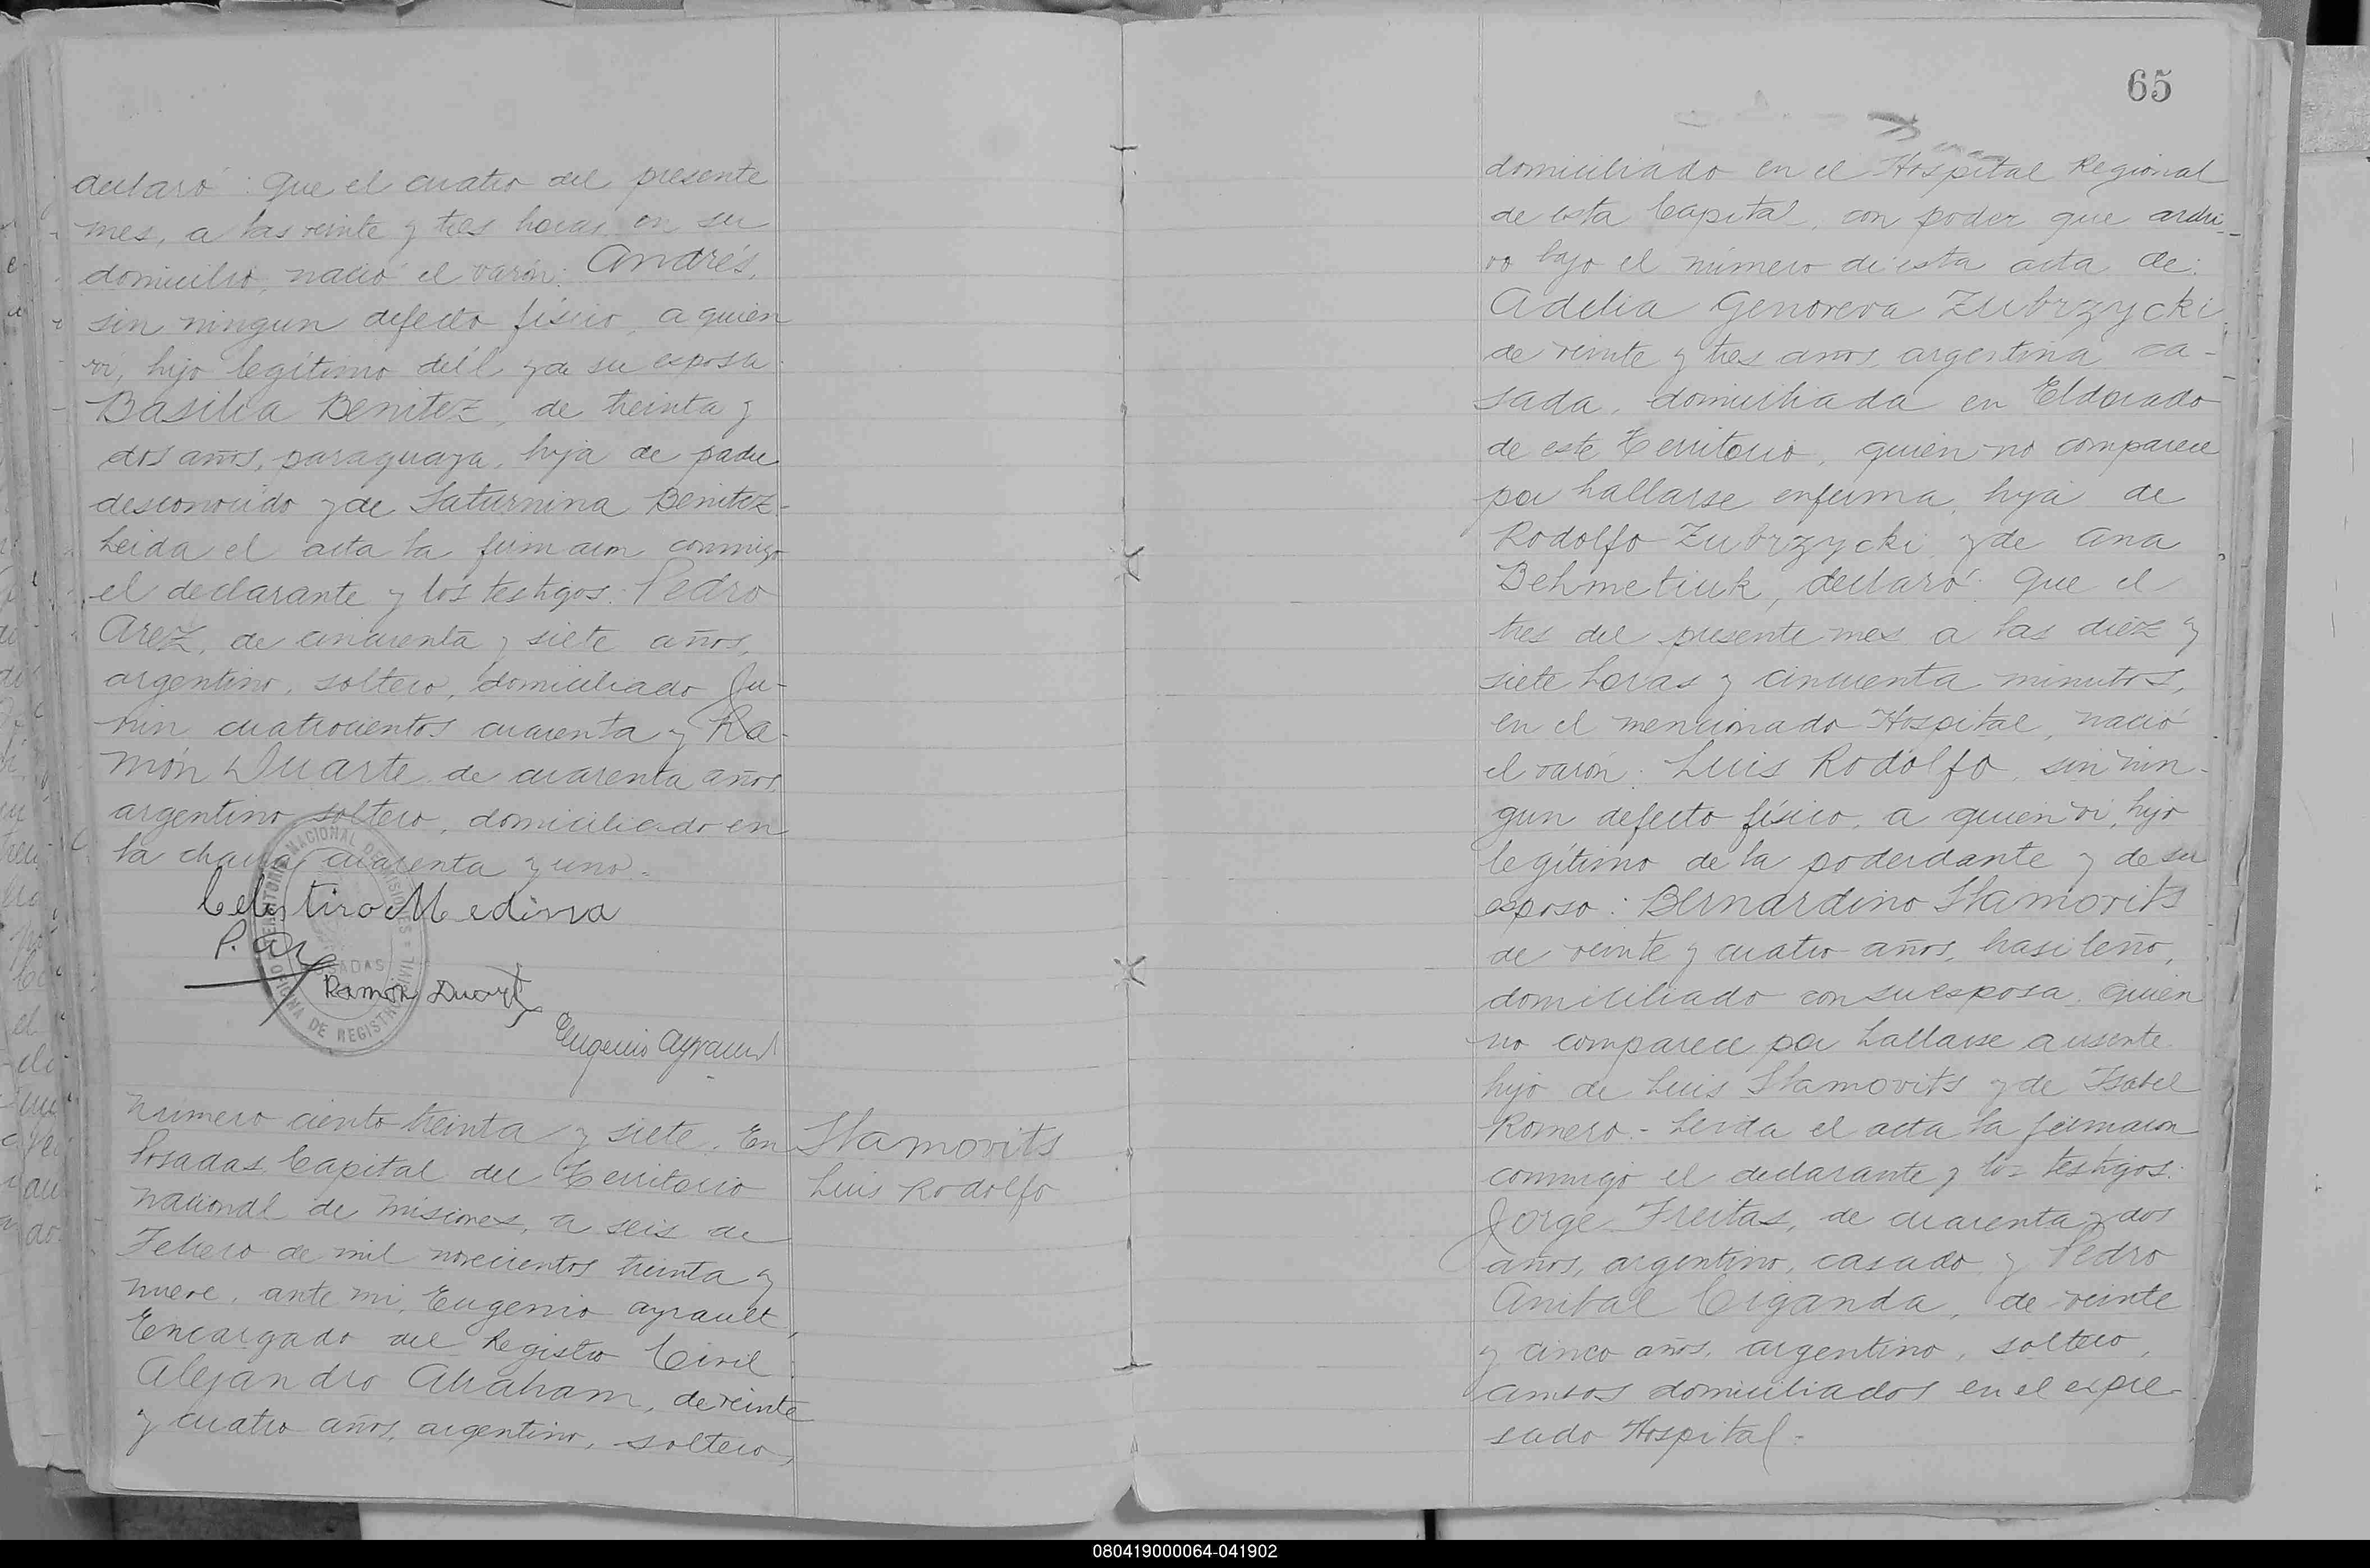 declaró: Que el cuatro del presente
mes, a las veinte y tres horas, en su
domicilio, nació el varón: Andrés,
sin ningun defecto físico, a quien
ví, hijo legítimo dél y de su esposa
Basilia Benitez, de treinta y
dos años, paraguaya, hija de padre
desconocido y de Saturnina Benitez.-
Leida el acta la firmaron conmigo
el declarante y los testigos: Pedro
Arez, de cincuenta y siete años,
argentino, soltero, domiciliado Ju-
nin cuatrocientos cuarenta y Ra-
món Duarte de cuarenta años,
argentino, soltero, domiciliado en
la chacra cuarenta y uno.-
Celestino Medina
P. Ar
Ramón Duarte
Eugenio Ayrault
TERRITORIO NACIONAL DE MISIONES - OFICINA DE REGISTRO CIVIL
POSADAS
Número ciento treinta y siete. En
Posadas Capital del Territorio
Nacional de Misiones, a seis de
Febrero de mil novecientos treinta y
nueve, ante mi, Eugenio Ayrault,
Encargado del Registro Civil:
Alejandro Abraham, de veinte
y cuatro años, argentino, soltero,
Stamovits
Luis Rodolfo
65
domiciliado en el Hospital Regional
de esta Capital, con poder que archi-
vo bajo el número de esta acta de:
Adelia Genoveva Zubrzycki,
de veinte y tres años, argentina, ca-
sada, domiciliada en Eldorado
de este Territorio, quien no comparece
por hallarse enferma, hija de
Rodolfo Zubrzycki y de Ana
Behmetiuk, declaró: Que el
tres del presente mes a las diez y
siete horas y cincuenta minutos,
en el mencionado Hospital, nació
el varón: Luis Rodolfo, sin nin-
gun defecto físico, a quien ví, hijo
legítimo de la poderdante y de su
esposo: Bernardino Stamovits
de veinte y cuatro años, brasileño,
domiciliado con su esposa, quien
no comparece por hallarse ausente
hijo de Luis Stamovits y de Isabel
Romero.- Leida el acta la firmaron
conmigo el declarante y los testigos:
Jorge Freitas, de cuarenta y dos
años, argentino, casado y Pedro
Anibal Ciganda, de veinte
y cinco años, argentino, soltero,
ambos domiciliados en el expre-
sado Hospital.-
080419000064-041902